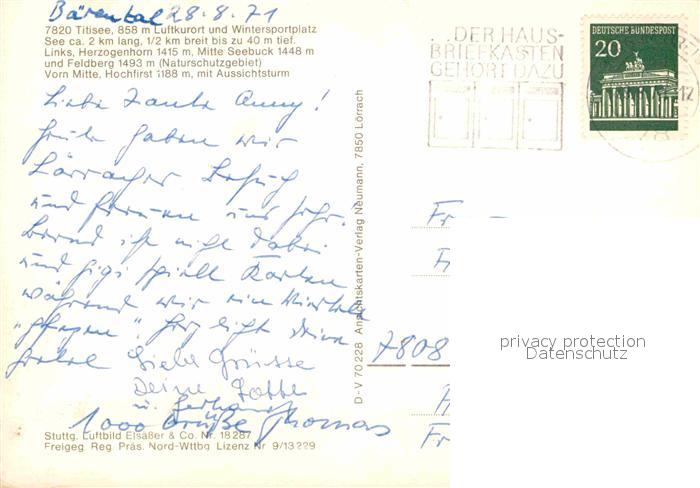 Bärental 28.8.71
7820 Titisee, 858 m Luftkurort und Wintersportplatz
See ca. 2 km lang, 1/2 km breit bis zu 40 m tief.
Links, Herzogenhorn 1415 m, Mitte Seebuck 1448 m
und Feldberg 1493 m (Naturschutzgebiet)
Vorn Mitte, Hochfirst 1188 m, mit Aussichtsturm
Liebe Tante Anny!
Heute haben wir
Lörracher Besuch
und freuen uns sehr.
Bernd ist nicht dabei
und Gigi spielt Karten
während wir ein Viertele
herzlichst Deine
Liebe Grüsse
Deine Lotte
u. Gerhard
1000 Grüße Thomas
Stuttg. Luftbild Elsäßer & Co. Nr. 18 287
Freigeg. Reg. Präs. Nord-Wttbg Lizenz Nr 9/13229
D-V 70 228 Ansichtskarten-Verlag Neumann, 7850 Lörrach
...DER HAUS-
BRIEFKASTEN
GEHÖRT DAZU
DEUTSCHE BUNDESPOST
20
12
78
Fr
7808
Fr
privacy protection
Datenschutz